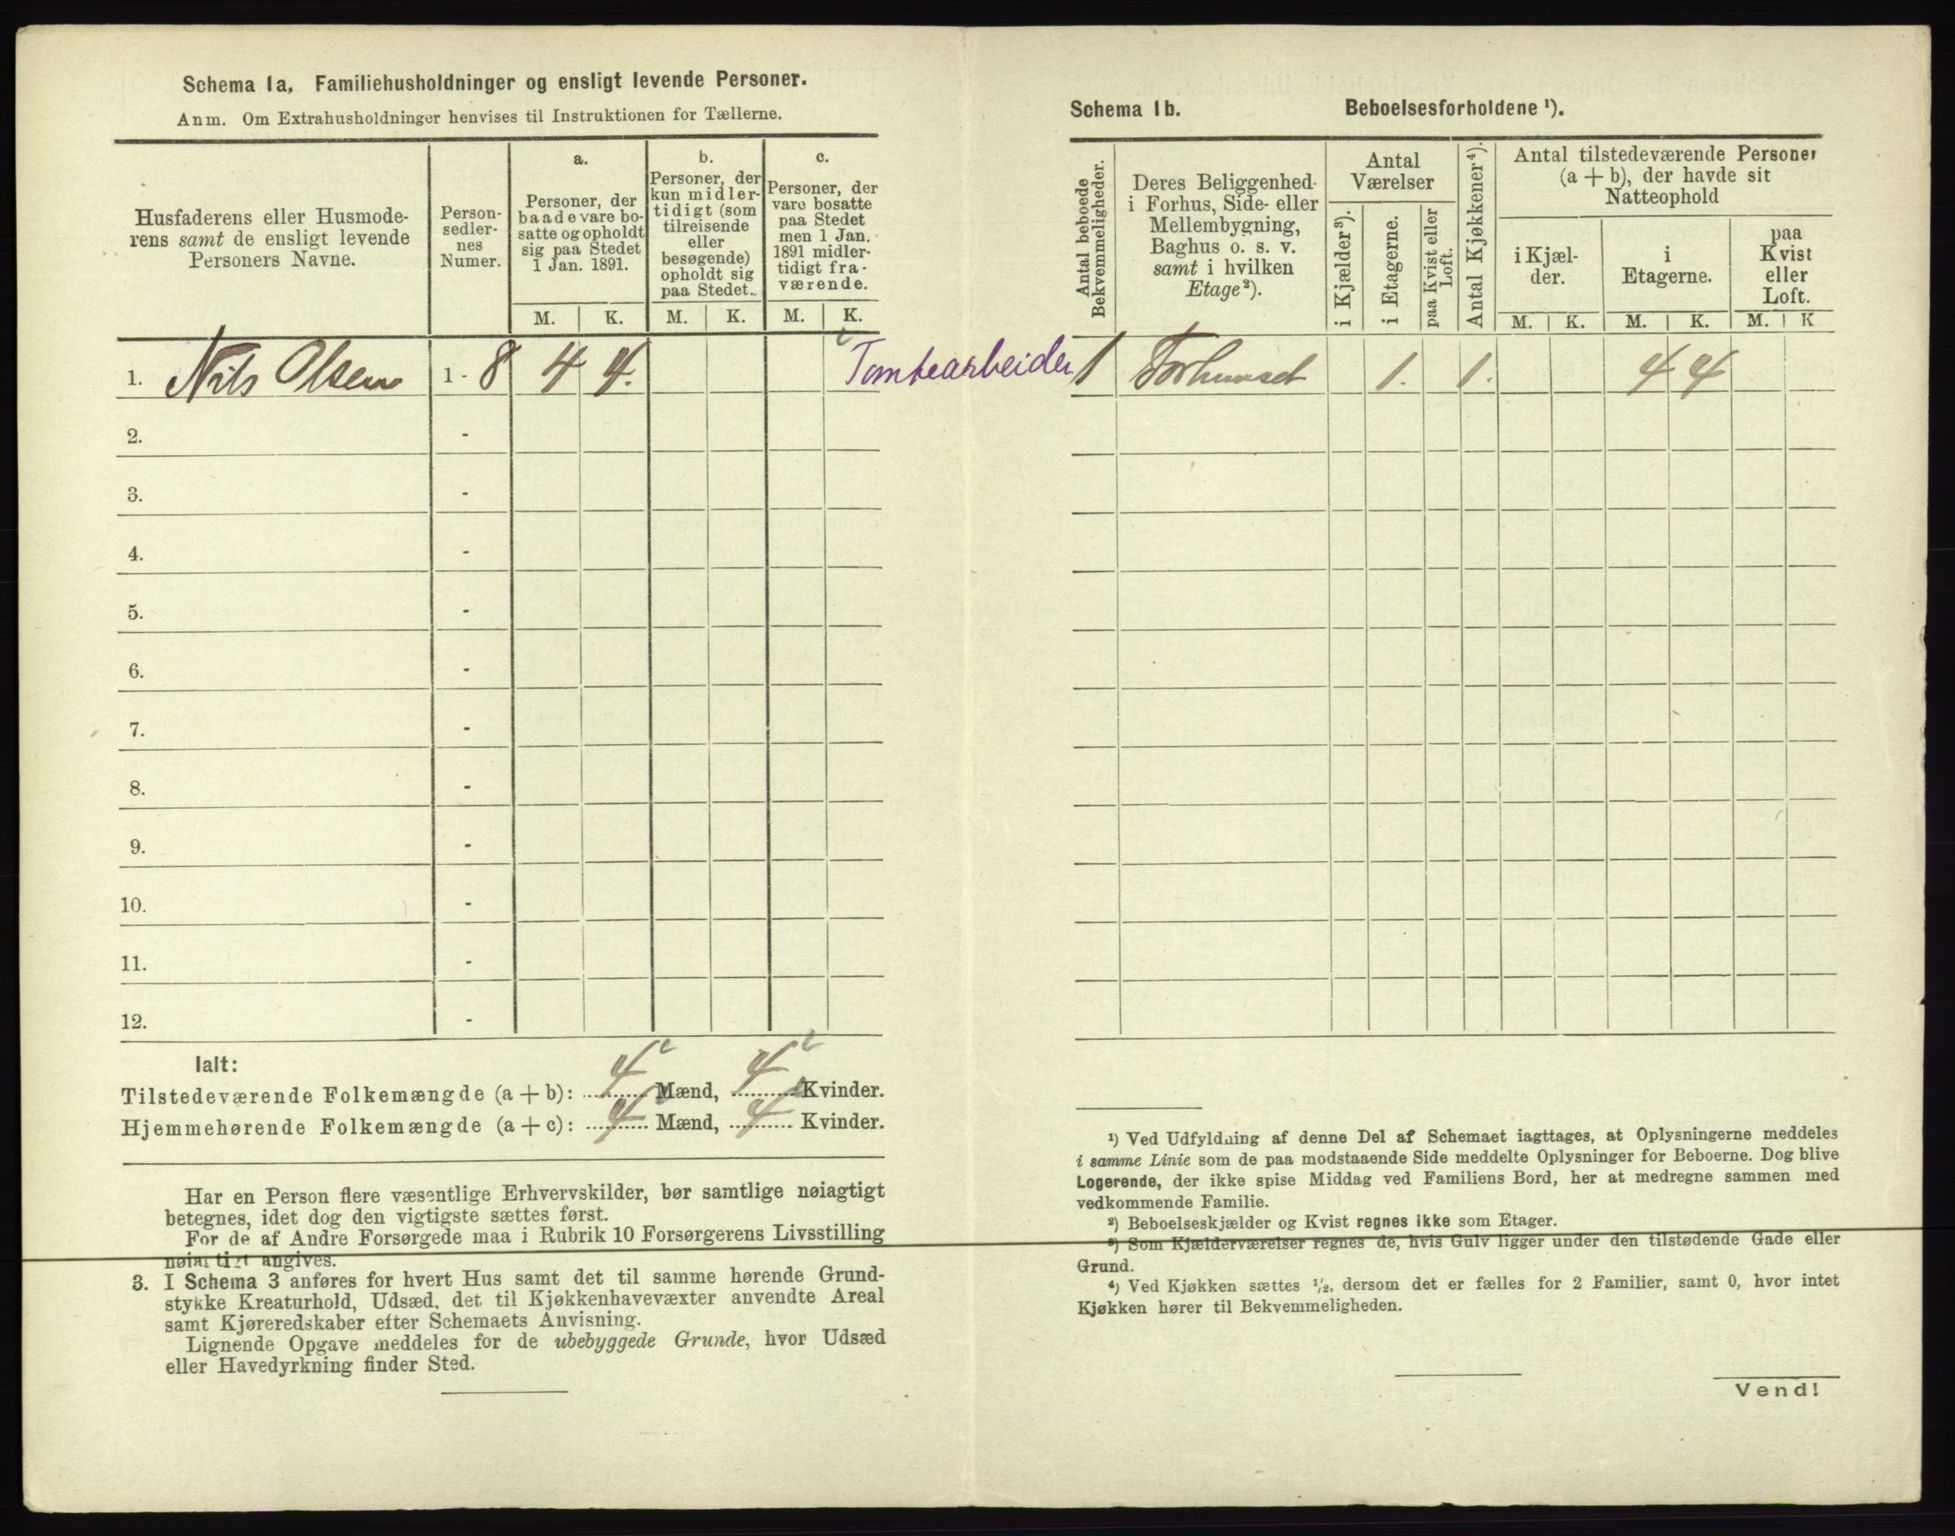 Schema 1a, Familiehusholdninger og ensligt levende Personer.
Anm. Om Extrahusholdninger henvises til Instruktionen for Tællerne.
Husfaderens eller Husmode-
rens samt de ensligt levende
Personers Navne.
Person-
sedler-
nes
Numer.
a.
Personer, der
baade vare bo-
satte og opholdt
sig paa Stedet
1 Jan. 1891.
b.
Personer, der
kun midler-
tidigt (som
tilreisende
eller
besøgende)
opholdt sig
paa Stedet.
c.
Personer, der
vare bosatte
paa Stedet
men 1 Jan.
1891 midler-
tidigt fra-
værende.
M. K. M. K. M. K.
1. Nils Olsen 1 - 8 4 4. Tomtearbeider
2. -
3. -
4. -
5. -
6. -
7. -
8. -
9. -
10. -
11. -
12. -
Ialt:
Tilstedeværende Folkemængde (a + b): 4 Mænd, 4 Kvinder.
Hjemmehørende Folkemængde (a + c): 4 Mænd, 4 Kvinder.
Har en Person flere væsentlige Erhvervskilder, bør samtlige nøiagtigt
betegnes, idet dog den vigtigste sættes først.
For de af Andre Forsørgede maa i Rubrik 10 Forsørgerens Livsstilling
nøiagtigt angives.
3. I Schema 3 anføres for hvert Hus samt det til samme hørende Grund-
stykke Kreaturhold, Udsæd, det til Kjøkkenhavevæxter anvendte Areal
samt Kjøreredskaber efter Schemaets Anvisning.
Lignende Opgave meddeles for de ubebyggede Grunde, hvor Udsæd
eller Havedyrkning finder Sted.
Schema 1b. Beboelsesforholdene ¹).
Antal beboede
Bekvemmeligheder.
Deres Beliggenhed
i Forhus, Side- eller
Mellembygning,
Baghus o. s. v.
samt i hvilken
Etage²).
Antal
Værelser
i Kjælder³).
i Etagerne.
paa Kvist eller
Loft.
Antal Kjøkkener⁴).
Antal tilstedeværende Personer
(a + b), der havde sit
Natteophold
i Kjæl-
der.
i
Etagerne.
paa
Kvist
eller
Loft.
M. K. M. K. M. K
1 Forhuset 1. 1. 4 4
¹) Ved Udfyldning af denne Del af Schemaet iagttages, at Oplysningerne meddeles
i samme Linie som de paa modstaaende Side meddelte Oplysninger for Beboerne. Dog blive
Logerende, der ikke spise Middag ved Familiens Bord, her at medregne sammen med
vedkommende Familie.
²) Beboelseskjælder og Kvist regnes ikke som Etager.
³) Som Kjælderværelser regnes de, hvis Gulv ligger under den tilstødende Gade eller
Grund.
⁴) Ved Kjøkken sættes ¹/₂, dersom det er fælles for 2 Familier, samt 0, hvor intet
Kjøkken hører til Bekvemmeligheden.
Vend!